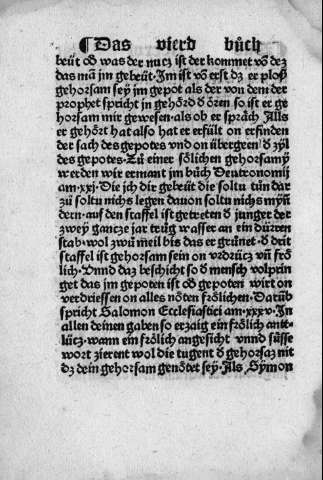 ¶ Das vierd bůch
beüt oð was der nucz ist der kommet võ dez
das mã jm gebeüt. Jm ist võ erst dz er ploß
gehorsam sey jm gepot als der von dem der
prophet spricht in gehörd đ õren so ist er ge
horsam mir gewesen. als ob er spräch Alls
er gehört hat also hat er erfült on erfinden
der sach des gepotes vnd on übergeen đ zyl
des gepotes. Zů einer sölichen gehorsamy
werden wir ermant jm bůch Deutronomij
am. xxj. Die ich dir gebeüt die soltu tůn dar
zů soltu nichs legen dauon soltu nichs myn̄
dern. auf den staffel ist getreten đ junger der
zwey gancze jar trůg wasser an ein dürren
stab. wol zwů meil bis das er grůnet. đ drit
staffel ist gehorsam sein on vrdrücz vn̄ frö
lich. Vnnd daz beschicht so đ mensch volprin
get das jm gepoten ist oð gepoten wirt on
verdriessen on alles nöten frölichen. Darüb
spricht Salomon Ecclesiastici am. xxxv. Jn
allen deinen gaben so erzaig ein frölich antt⸗
lücz. wann ein frölich angesicht vnnd süsse
wort zierent wol die tugent đ gehorsaz nit
dz dein gehorsam genötet sey. Als Symon